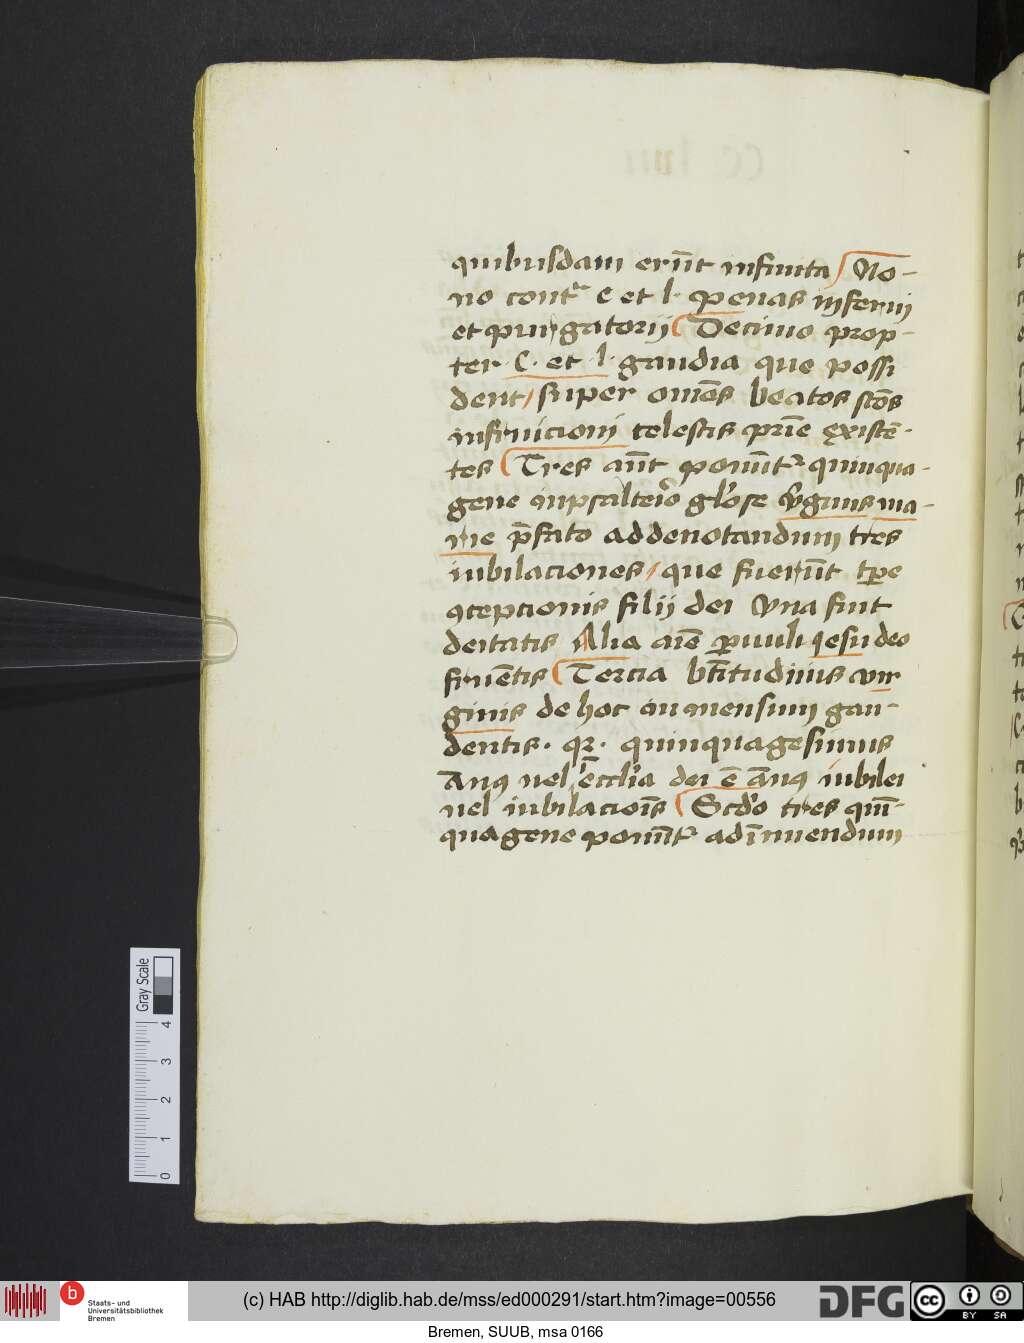 quibusdam erūt infinita No-
no contra C et l. penas inferni
et purgatorij Decimo prop-
ter C. et l. gaudia que possi
dent / super omēs beatos scōs
infinicioni celestis prīe existē-
tes Tres aūt ponūtr quinqua-
gene in psalterio glose v̄ginis ma-
rie p̄fato ad denotandum tres
iubilaciones / que fuerūt tp̄e
ꝯcepcionis filij dei Vna fuit
deitatis Alia aīe p̄uuli iesu deo
fruētis Tercia bt̄itudinis vir
ginis de hoc in mensum gau-
dentis. qꝛ. quinquagesimus
Anꝯ uel ēccl'ia dei ē ānꝯ iubilei
uel iubilacioīs Scd'o tres quī-
quagene ponūtr ad īnuendum
Gray Scale
0 1 2 3 4
b
Staats- und
Universitätsbibliothek
Bremen
(c) HAB http://diglib.hab.de/mss/ed000291/start.htm?image=00556
DFG
cc BY SA
Bremen, SUUB, msa 0166